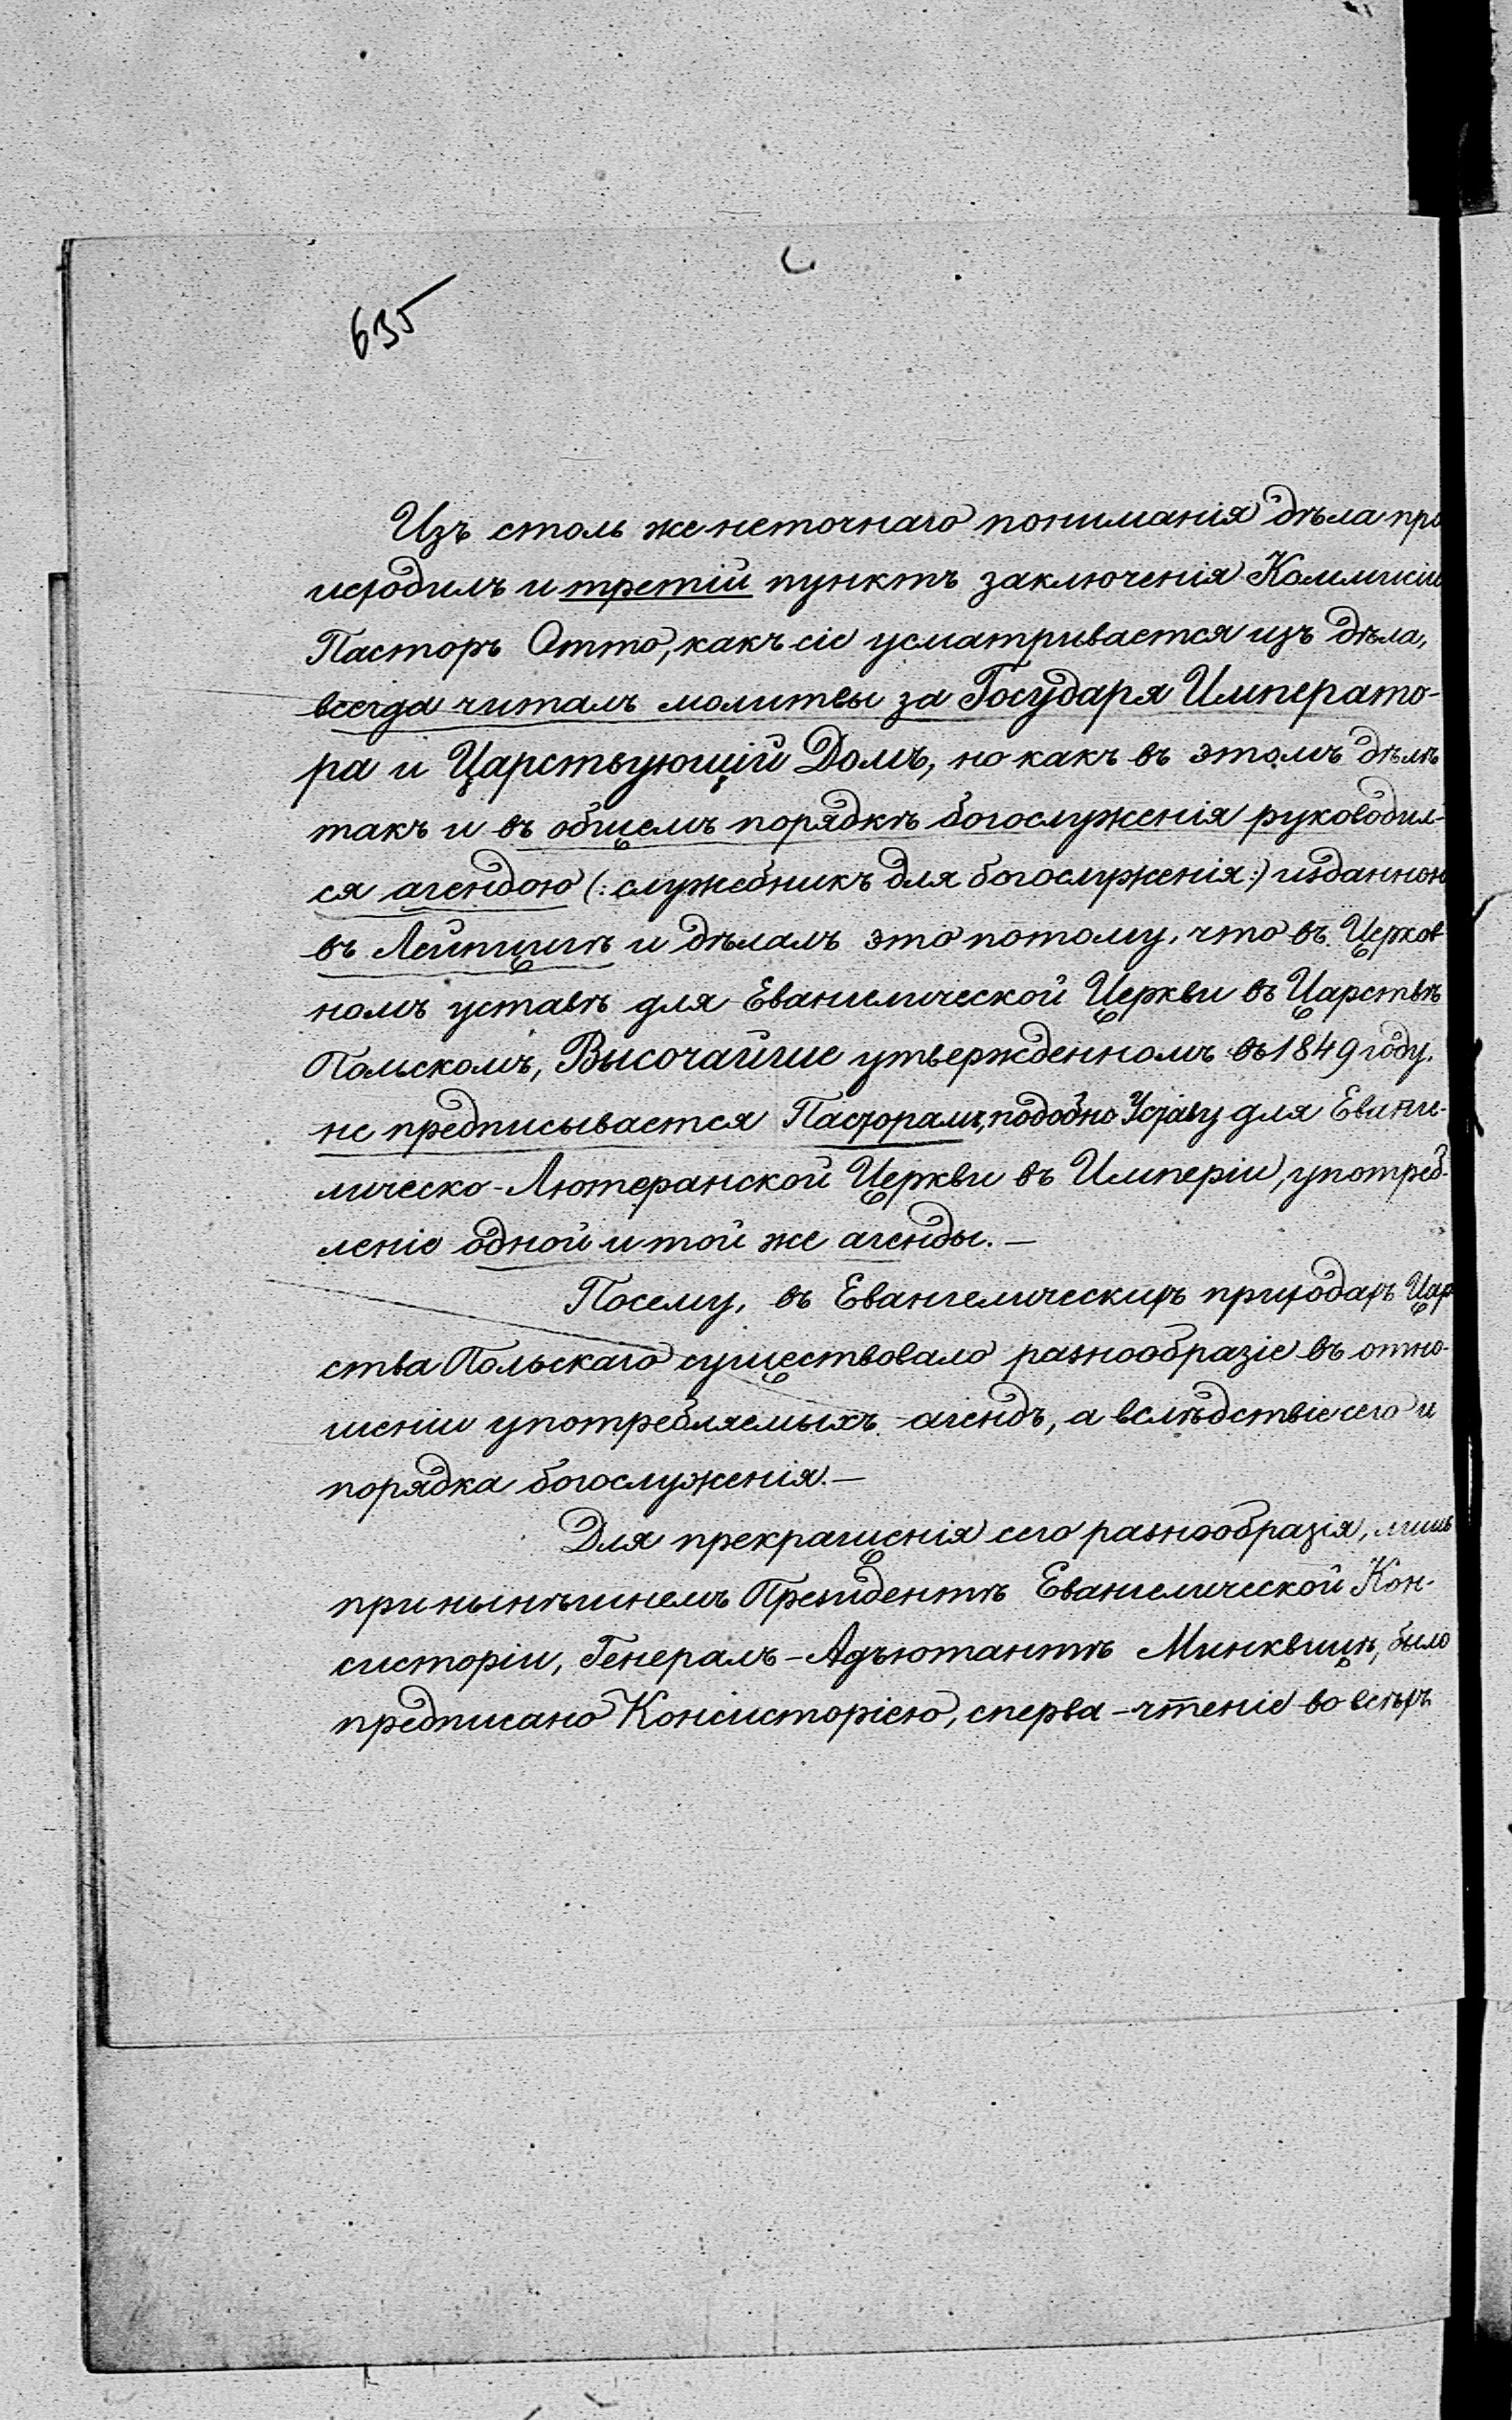 635
Изъ столь же неточнаго пониманія дѣла про
исходилъ и третій пунктъ заключенія Коммисіи
Пасторъ Отто, какъ сіе усматривается изъ дѣла,
всегда читалъ молитвы за Государя Императо-
ра и Царствующій Домъ, но какъ въ этомъ дѣлѣ
такъ и въ общемъ порядкѣ богослуженія руководил-
ся агендою (: служебникъ для богослуженія :) изданною
въ Лейпцигѣ и дѣлалъ это потому, что въ Церков
номъ уставѣ для Евангелической Церкви въ Царствѣ
Польскомъ, Высочайше утвержденномъ въ 1849 году.
не предписывается Пасторамъ, подобно Уставу для Еванге-
лическо-Лютеранской Церкви въ Имперіи, употреб-
леніе одной и той же агенды. —
Посему, въ Евангелическихъ приходахъ Цар
ства Польскаго существовало разнообразіе въ отно-
шеніи употребляемыхъ агендъ, а вслѣдствіе сего и
порядка богослуженія. —
Для прекращенія сего разнообразія, лишь
при нынѣшнемъ Президентѣ Евангелической Кон-
систоріи, Генералъ-Адъютантѣ Минквицѣ, было
предписано Консисторіею, сперва - чтеніе во всѣхъ